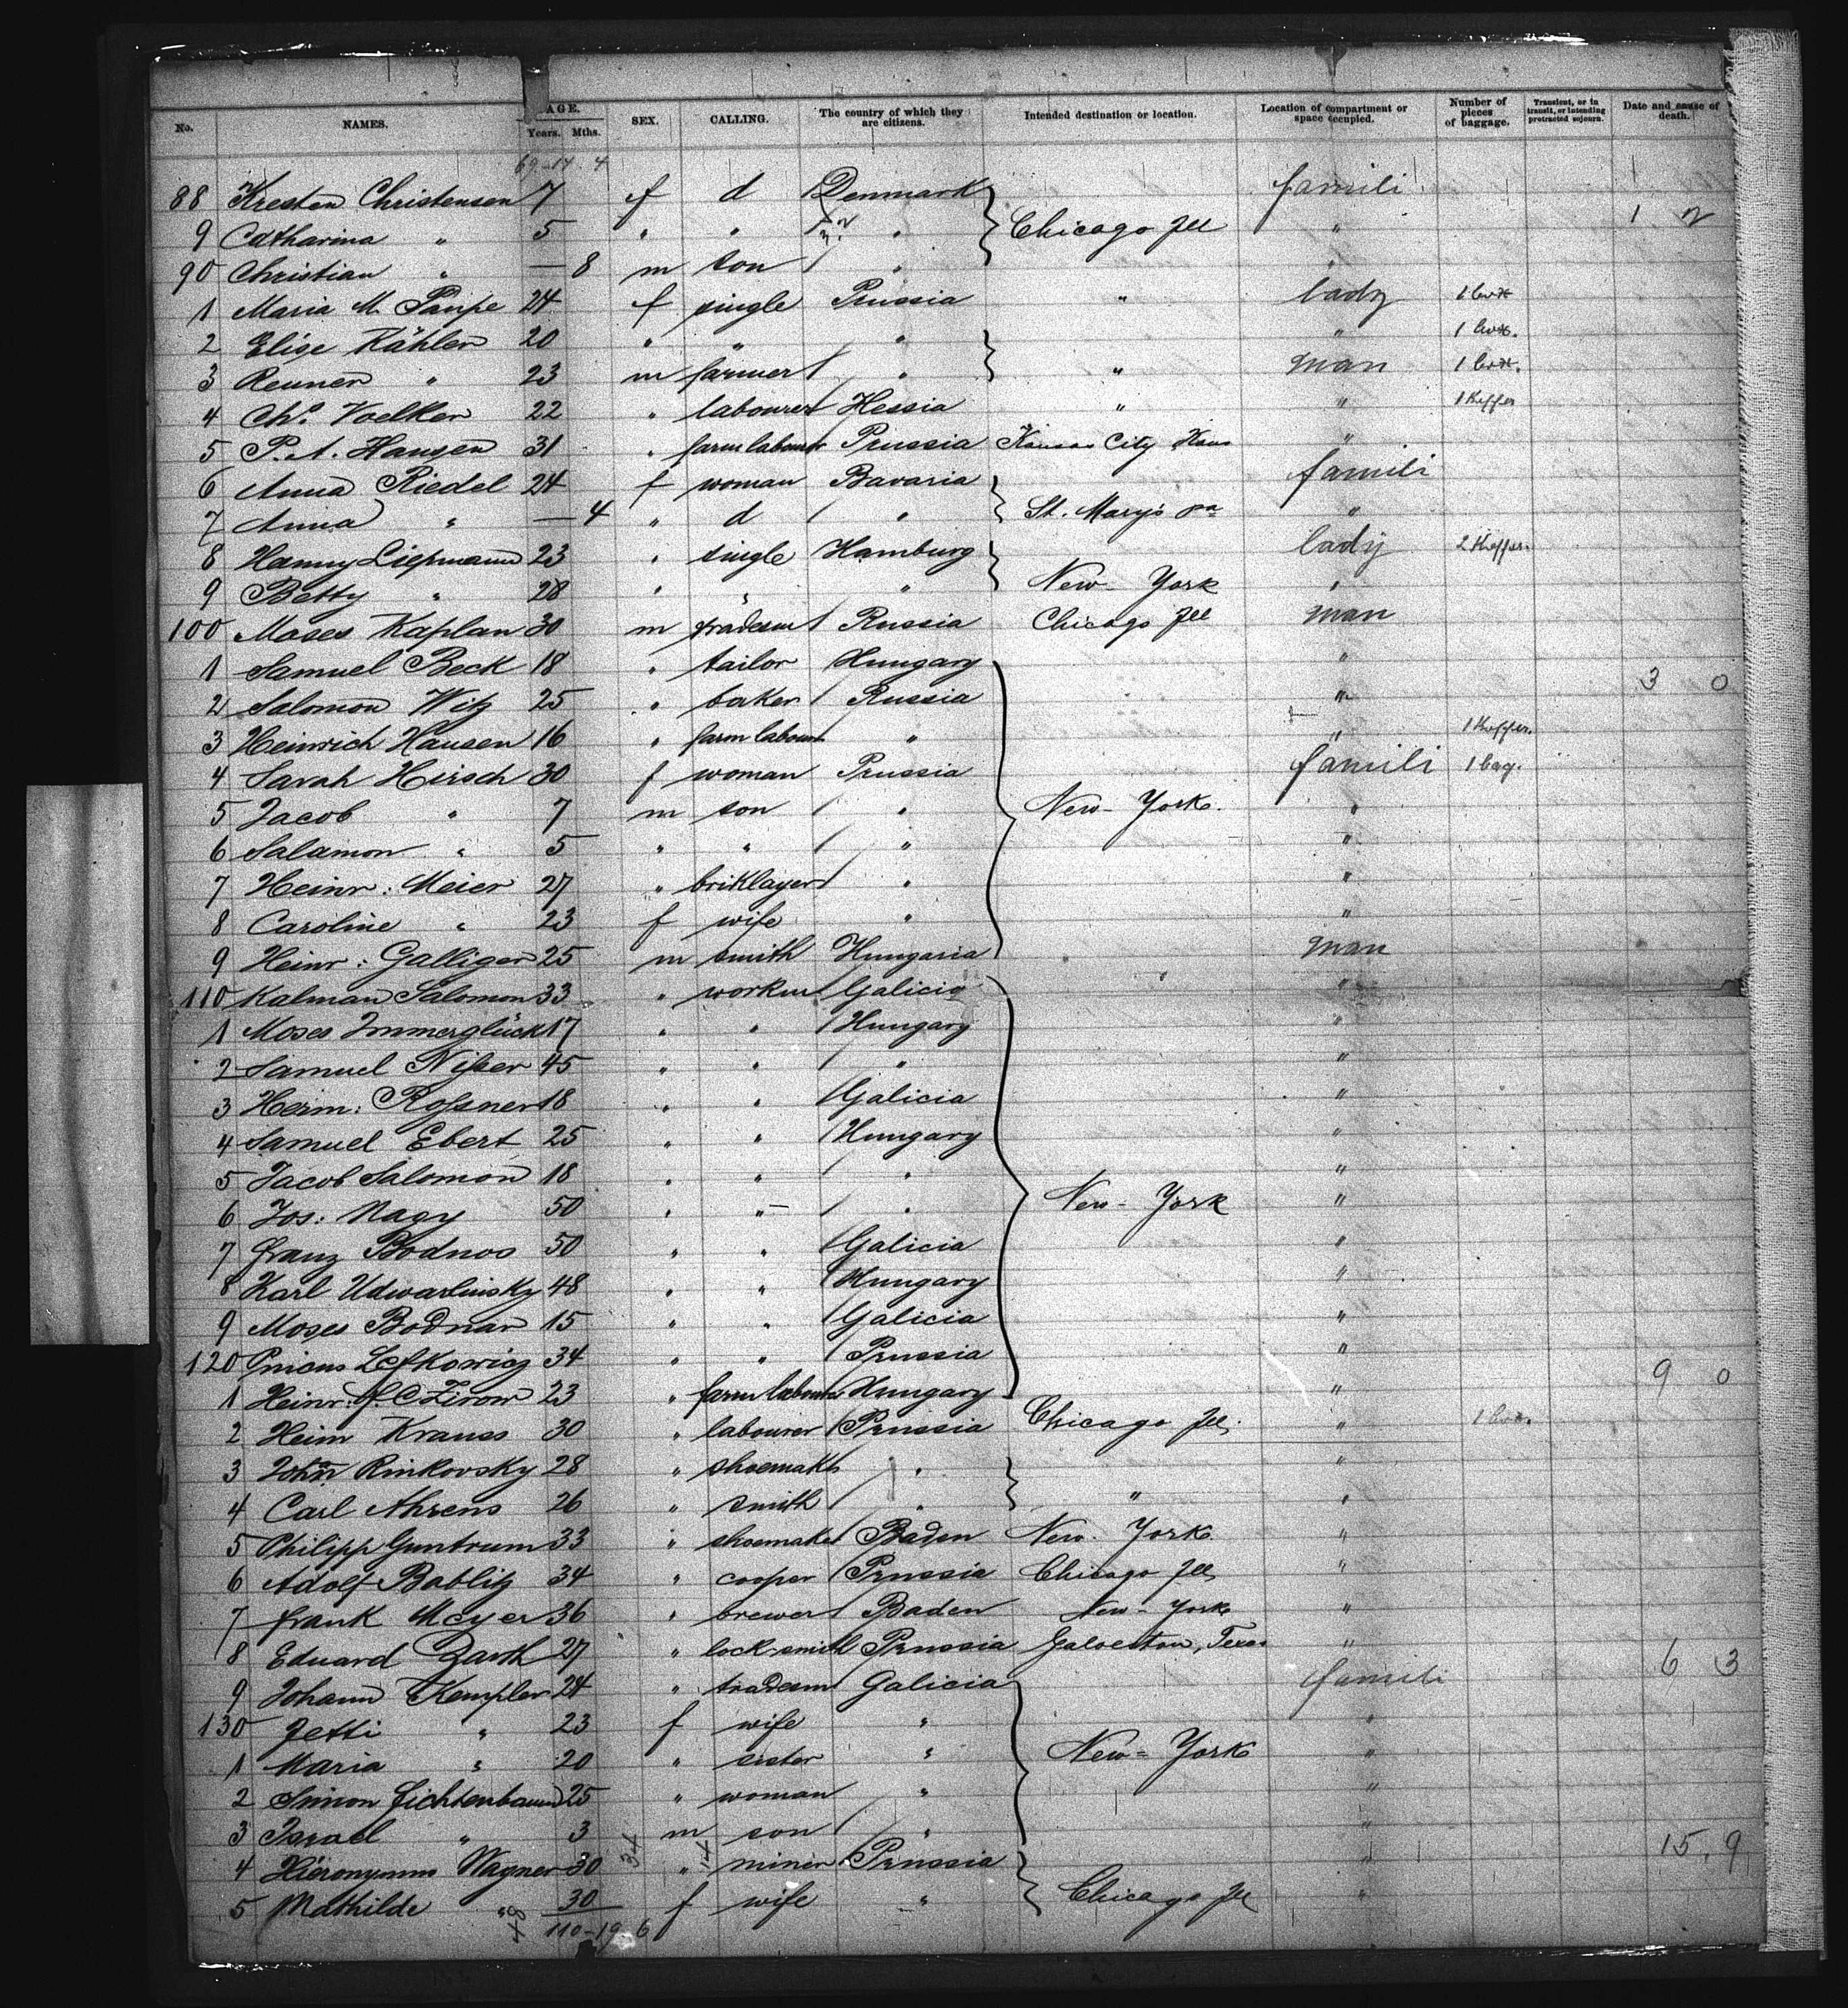 No. NAMES. AGE. Years. Mths. SEX. CALLING. The country of which they are citizens. Intended destination or location. Location of compartment or space occupied. Number of pieces of baggage. Transient, or in transit, or intending protracted sojourn. Date and cause of death.
69-14 4
88 Kresten Christensen 7 f d Denmark famili
9 Catharina " 5 " " " Chicago Ill " 1 2
90 Christian " — 8 m son " "
1 Maria M. Paupe 24 f single Prussia " lady 1 box
2 Elise Kähler 20 " " " " 1 box.
3 Reuner " 23 m farmer " " man 1 box.
4 Chs. Voelker 22 " labourer Hessia " " 1 Koffer
5 P. A. Hansen 31 " farm labour Prussia Kansas City Kans "
6 Anna Riedel 24 f woman Bavaria famili
7 Anna " — 4 " d " St. Marys Pa "
8 Hanny Liepmann 23 " single Hamburg lady 2 Koffer.
9 Betty " 28 " " " New-York "
100 Moses Kaplan 30 m tradesm Russia Chicago Ill man
1 Samuel Beck 18 " tailor Hungary "
2 Salomon Witz 25 " baker Russia " 3 0
3 Heinrich Hansen 16 " farm labour " " 1 Koffer.
4 Sarah Hirsch 30 f woman Prussia famili 1 bag.
5 Jacob " 7 m son " New-York. "
6 Salamon " 5 " " " "
7 Heinr: Meier 27 " briklayer " "
8 Caroline " 23 f wife " "
9 Heinr: Galliger 25 m smith Hungaria " man
110 Kalman Salomon 33 " workm Galicia "
1 Moses Immerglück 17 " " Hungary "
2 Samuel Nißer 45 " " " "
3 Herm: Roßner 18 " " Galicia "
4 Samuel Ebert 25 " " Hungary "
5 Jacob Salomon 18 " " " "
6 Jos: Nagy 50 " " " New-York "
7 Franz Bodnos 50 " " Galicia "
8 Karl Udwarlinsky 48 " " Hungary "
9 Moses Bodnar 15 " " Galicia "
120 Pnicus Lefkowicz 34 " " Prussia "
1 Heinr. 23 " farm labour Hungary " 9 0
2 Heim Krauss 30 " labourer Prussia Chicago Ill. " 1 box.
3 John Rinkovsky 28 " shoemak " "
4 Carl Ahrens 26 " smith " " "
5 Philipp Guntrum 33 " shoemaker Baden New-York "
6 Adolf Bablitz 34 " cooper Prussia Chicago Ill "
7 Frank Meyer 36 " brewer Baden New-York "
8 Eduard Barth 27 " lock-smith Prussia Galveston, Texas " 6 3
9 Johann Kempler 24 " tradesm Galicia famili
130 Jetti " 23 f wife " "
1 Maria " 20 " sister " New=York "
2 Simon Lichtenbaum 25 " woman " "
3 Israel " 3 m son " "
4 Hieronymus Wagner 30 " miner Prussia " 15. 9
5 Mathilde " 30 f wife " Chicago Ill "
48 110-19 6
34
14